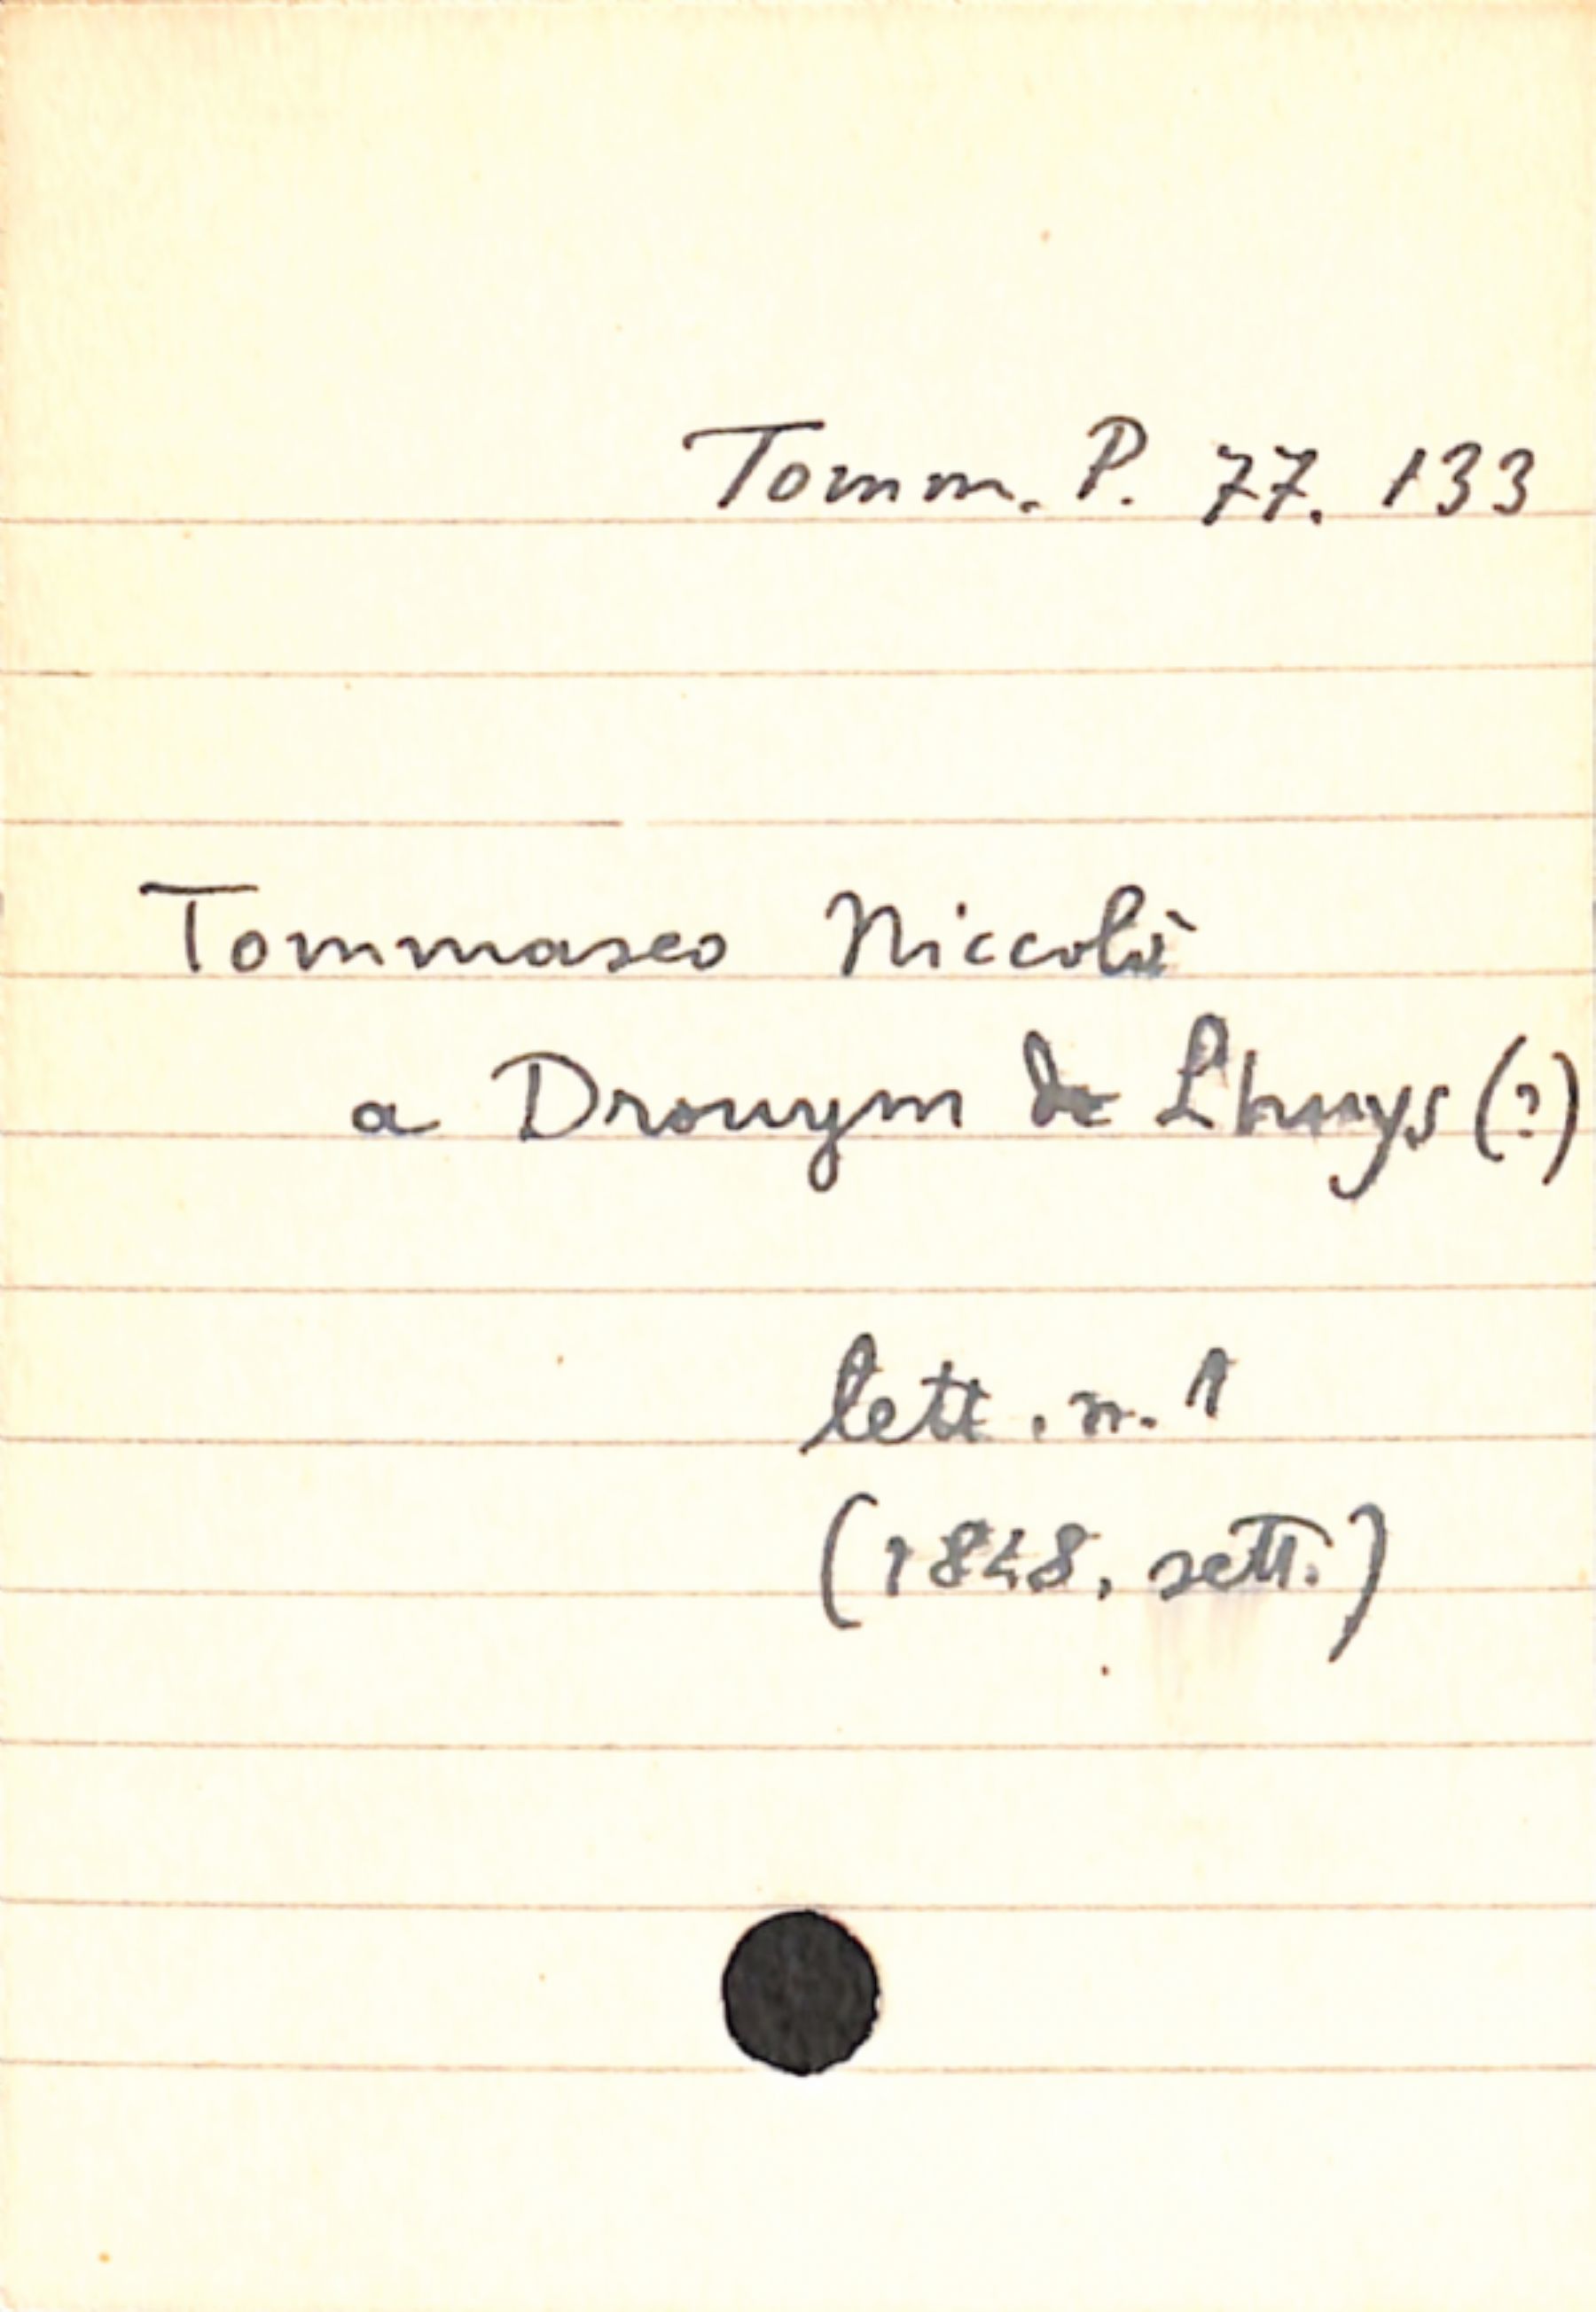 Tomm. P. 77. 133
Tommaseo Niccolò
a Drouym de Lhuys (?)
lett. n. 1
(1848, sett.)